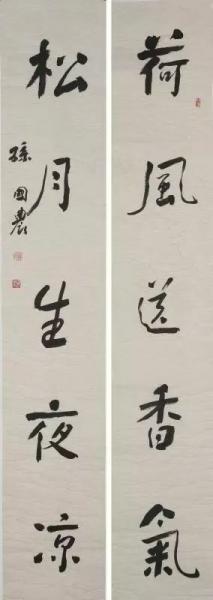 荷風送香氣
松月生夜凉
孫國農